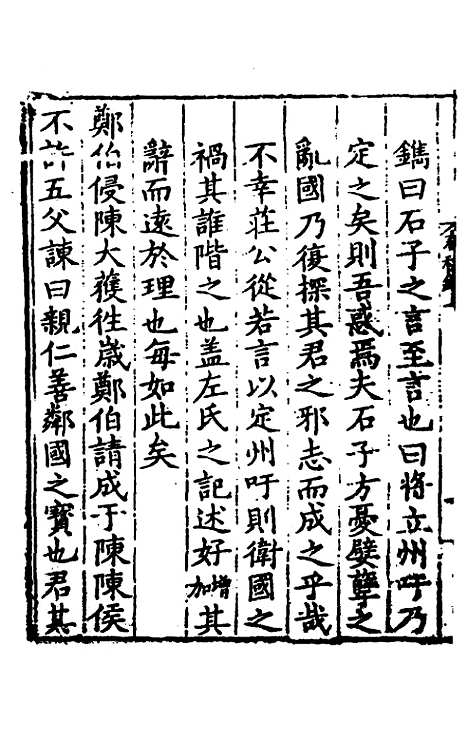 鐫曰石子之言至言也曰将立州吁乃
定之矣則吾惑焉夫石子方憂嬖孽之
亂國乃復探其君之邪志而成之乎哉
不幸荘公從若言以定州吁則衛國之
禍其誰階之也盖左氏之記述好增加其
辭而逺於理也每如此矣
鄭伯侵陳大獲徃歳鄭伯請成于陳陳侯
不許五父諫曰親仁善鄰國之寳也君其